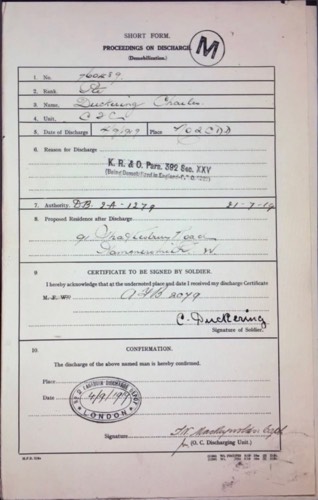 SHORT FORM.
PROCEEDINGS ON DISCHARGE
(Demobilization.)
M
1. No. 760289
2. Rank. Pte
3. Name. Duckering Charles
4. Unit.
5. Date of Discharge Place
6. Reason for Discharge
K. R. & O. Para. 392 Sec. XXV
(Being Demobilized in England
7. Authority. DB-2A-1279 21-7-19
8. Proposed Residence after Discharge
Road
Hammersmith W.
9 CERTIFICATE TO BE SIGNED BY SOLDIER.
I hereby acknowledge that at the undernoted place and date I received my discharge Certificate
2079
C. Duckering
Signature of Soldier.
10 CONFIRMATION.
The discharge of the above named man is hereby confirmed.
Place
Date 4/9/1919
DISCHARGE DEPOT
LONDON
Signature Capt
for (O. C. Discharging Unit.)